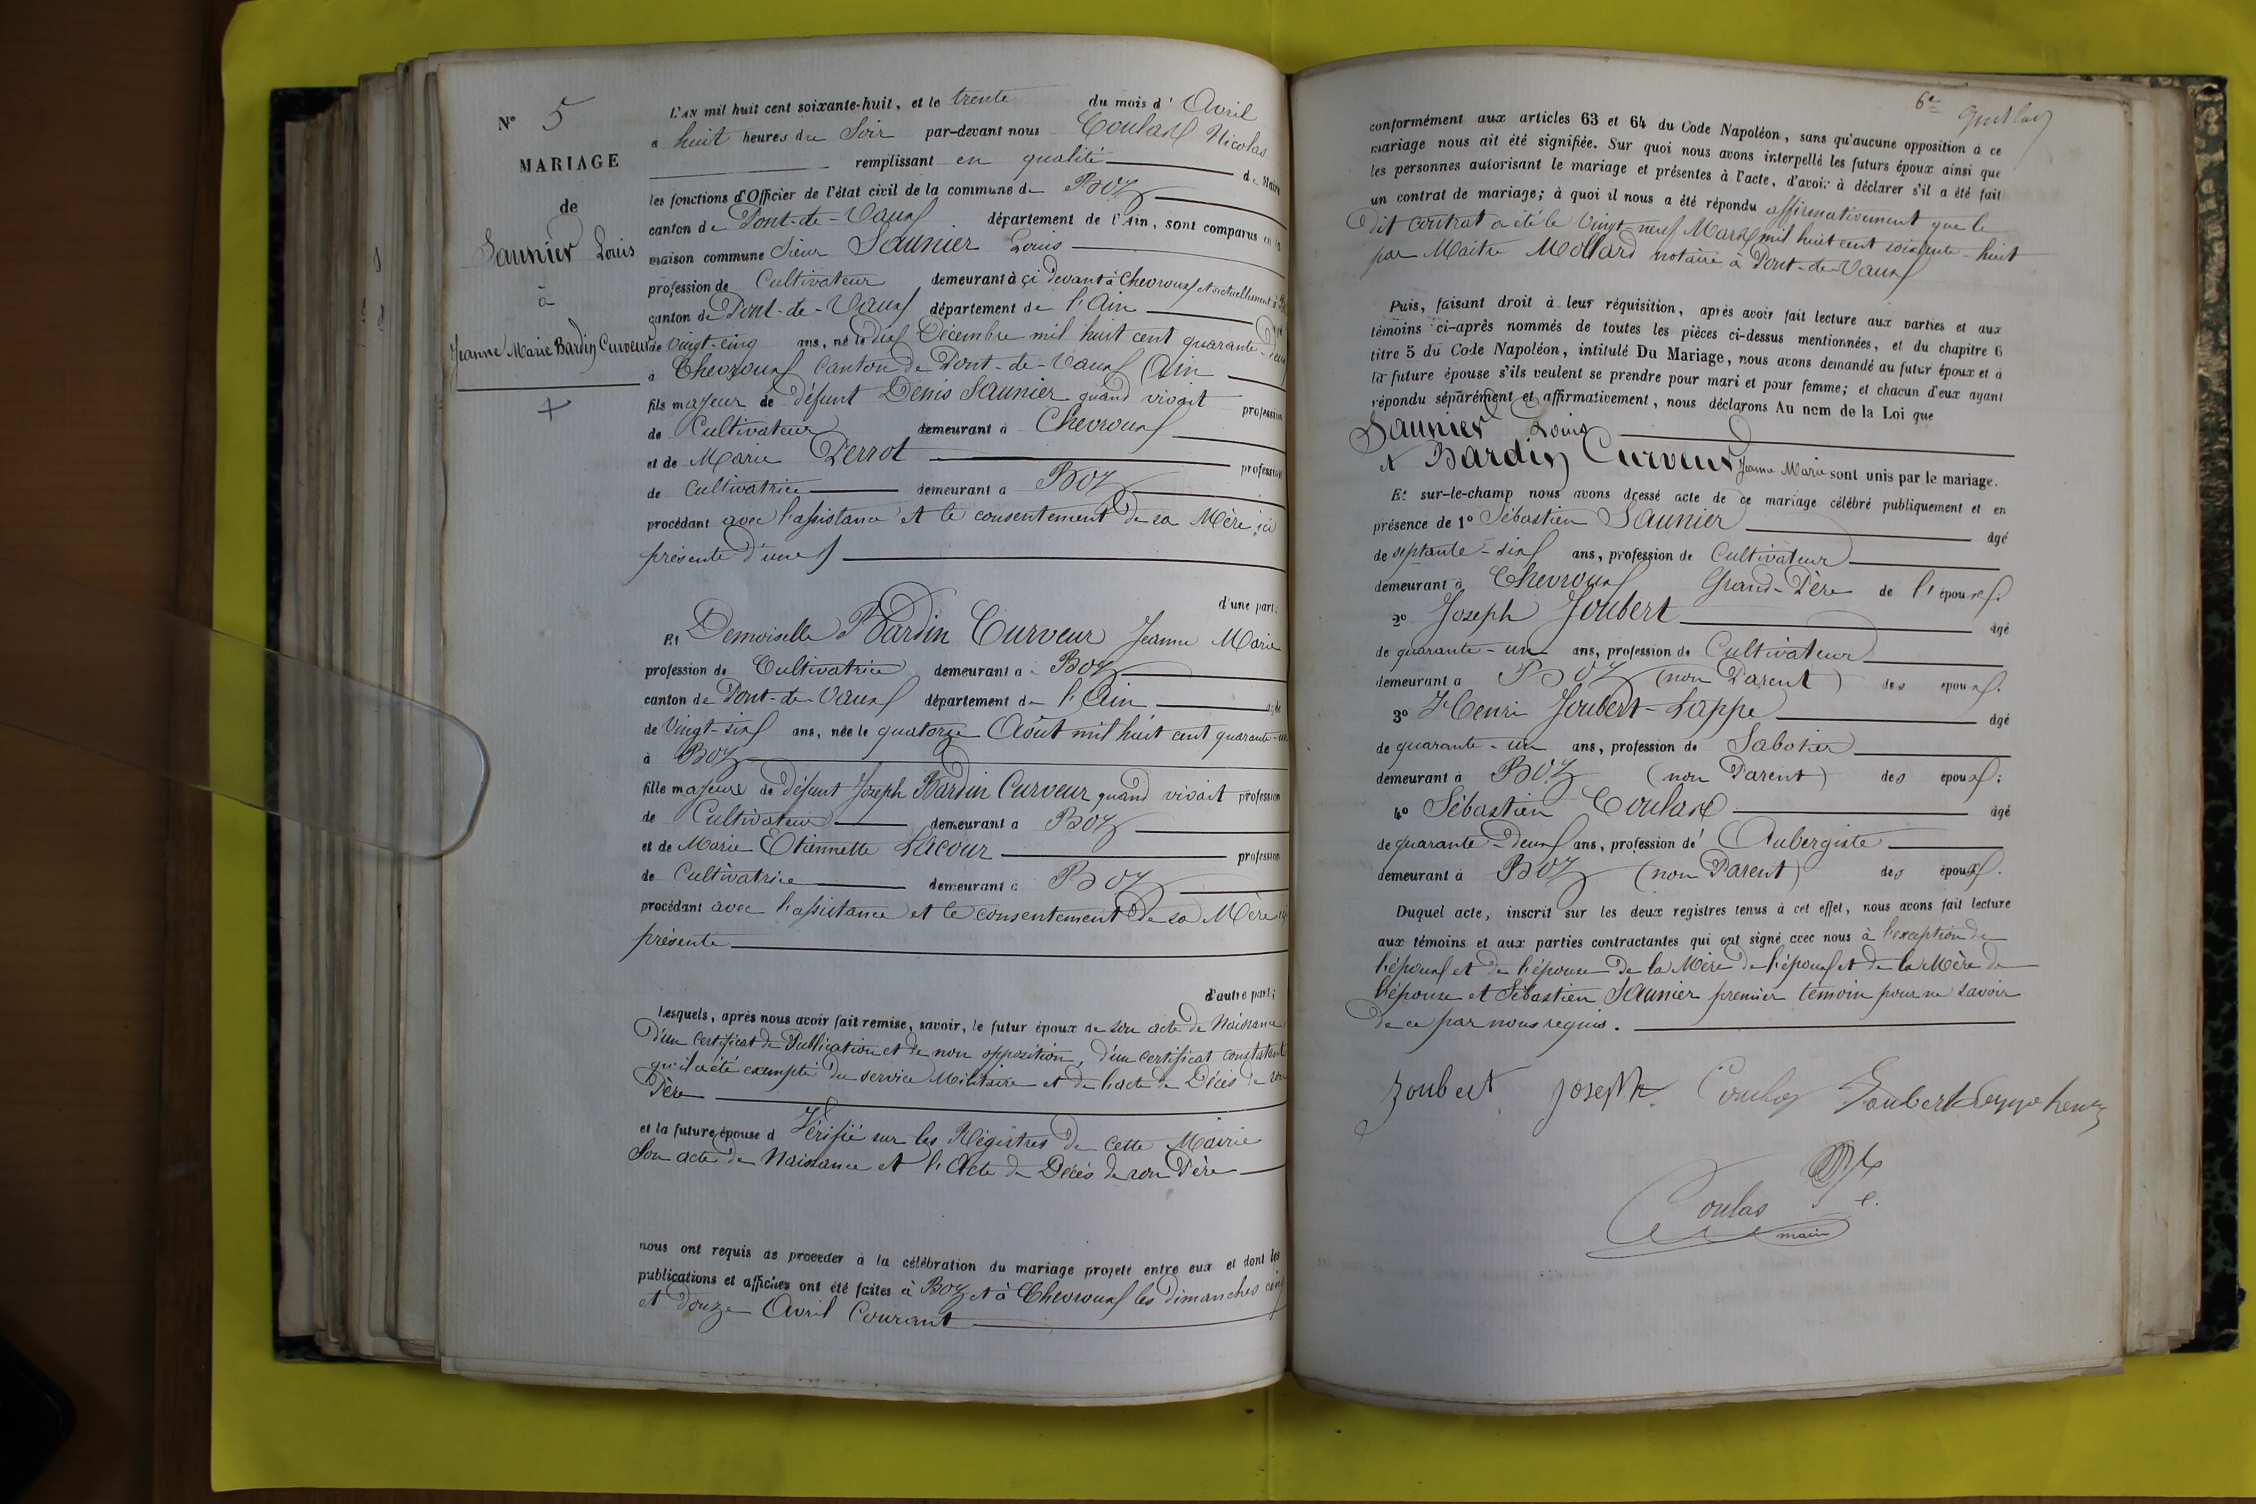 N° 5
MARIAGE
de
Saunier Louis
à
Jeanne Marie Bardin Curveur
L'AN mil huit cent soixante-huit, et le trente du mois d' Avril
à huit heures du Soir par-devant nous Coulas Nicolas
remplissant en qualité de Maire
les fonctions d'Officier de l'état civil de la commune de Boz
canton de Pont-de-Vaux département de l'Ain, sont comparus en la
maison commune Sieur Saunier Louis
profession de Cultivateur demeurant à çi devant à Chevroux et actuellement à Boz
canton de Pont-de-Vaux département de l'Ain
de vingt-cinq ans, né le dix Décembre mil huit cent quarante-deux
à Chevroux Canton de Pont-de-Vaux (Ain
fils majeur de défunt Denis Saunier quand vivait profession
de Cultivateur demeurant à Chevroux
et de Marie Perrot profession
de Cultivatrice demeurant à Boz
procédant avec l'assistance et le consentement de sa Mère ici
présente d'une f
d'une part;
Et Demoiselle Bardin Curveur Jeanne Marie
profession de Cultivatrice demeurant à Boz
canton de Pont-de-Vaux département de l'Ain âgée
de Vingt-six ans, née le quatorze Août mil huit cent quarante-un
à Boz
fille majeure de défunt Joseph Bardin Curveur quand vivait profession
de Cultivateur demeurant à Boz
et de Marie Etiennette Lacour profession
de Cultivatrice demeurant à Boz
procédant avec l'assistance et le consentement de sa Mère ici
présente
d'autre part;
Lesquels, après nous avoir fait remise, savoir, le futur époux de son acte de Naissance
d'un certificat de Publication et de non opposition, d'un certificat constatant
qu'il a été exempté du service Militaire et de l'acte de Décès de son
Père
et la future épouse d Vérifié sur les Régistres de cette Mairie
Son acte de Naissance et l'Acte de Décès de son Père
nous ont requis de procéder à la célébration du mariage projeté entre eux et dont les
publications et affiches ont été faites à Boz et à Chevroux les dimanches cinq
et douze Avril Courant
6e
conformément aux articles 63 et 64 du Code Napoléon, sans qu'aucune opposition à ce
mariage nous ait été signifiée. Sur quoi nous avons interpellé les futurs époux ainsi que
les personnes autorisant le mariage et présentes à l'acte, d'avoir à déclarer s'il a été fait
un contrat de mariage; à quoi il nous a été répondu affirmativement que le
dit contrat a été le Vingt-neuf Mars mil huit cent soixante-huit
par Maitre Mollard notaire à Pont-de-Vaux
Puis, faisant droit à leur réquisition, après avoir fait lecture aux parties et aux
témoins ci-après nommés de toutes les pièces ci-dessus mentionnées, et du chapitre 6
titre 5 du Code Napoléon, intitulé Du Mariage, nous avons demandé au futur époux et à
la future épouse s'ils veulent se prendre pour mari et pour femme; et chacun d'eux ayant
répondu séparément et affirmativement, nous déclarons Au nom de la Loi que
Saunier Louis
et Bardin Curveur Jeanne Marie sont unis par le mariage.
Et sur-le-champ nous avons dressé acte de ce mariage célébré publiquement et en
présence de 1° Sébastien Saunier âgé
de septante-six ans, profession de Cultivateur
demeurant à Chevroux Grand-Père de l'époux.
2° Joseph Joubert âgé
de quarante-un ans, profession de Cultivateur
demeurant à Boz (non Parent) des époux.
3° Henri Joubert-Lappe âgé
de quarante-un ans, profession de Sabotier
demeurant à Boz (non Parent) des époux;
4° Sébastien Coulas âgé
de quarante-deux ans, profession d' Aubergiste
demeurant à Boz (non Parent) des époux.
Duquel acte, inscrit sur les deux registres tenus à cet effet, nous avons fait lecture
aux témoins et aux parties contractantes qui ont signé avec nous à l'exception de
l'époux et de l'épouse de la Mère de l'époux et de la Mère de
l'épouse et Sébastien Saunier premier témoin pour ne savoir
de ce par nous requis.
Joubert Joseph Coulas Joubert Lappe henri
Coulas
maire